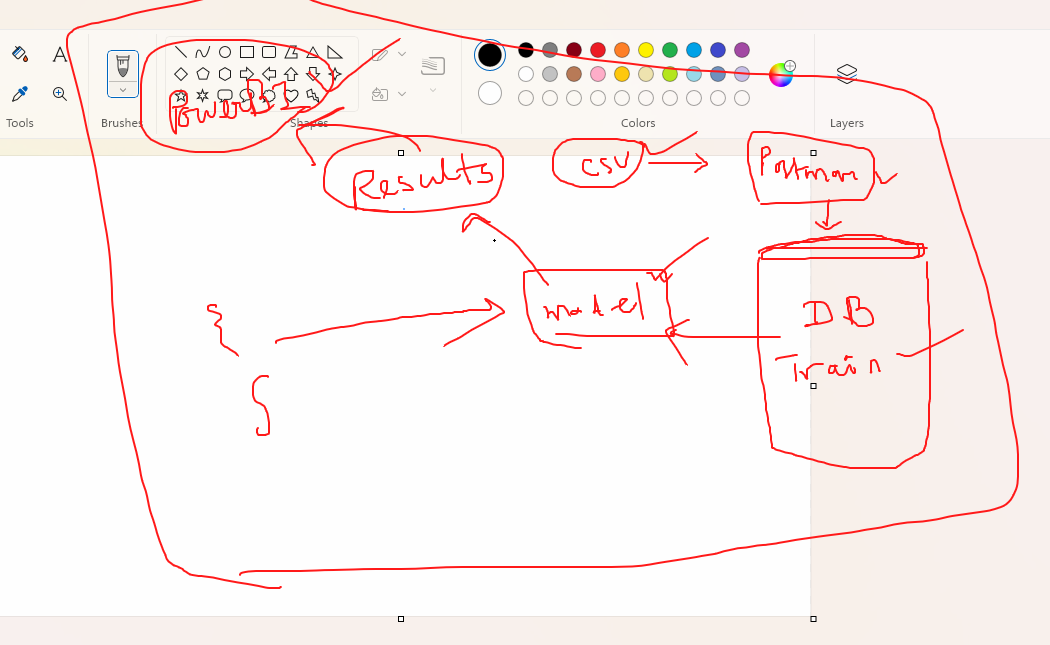 Tools
Brushes
Shapes
Colors
Layers
PowerBI
Results
csv
Postman
model
DB
Train